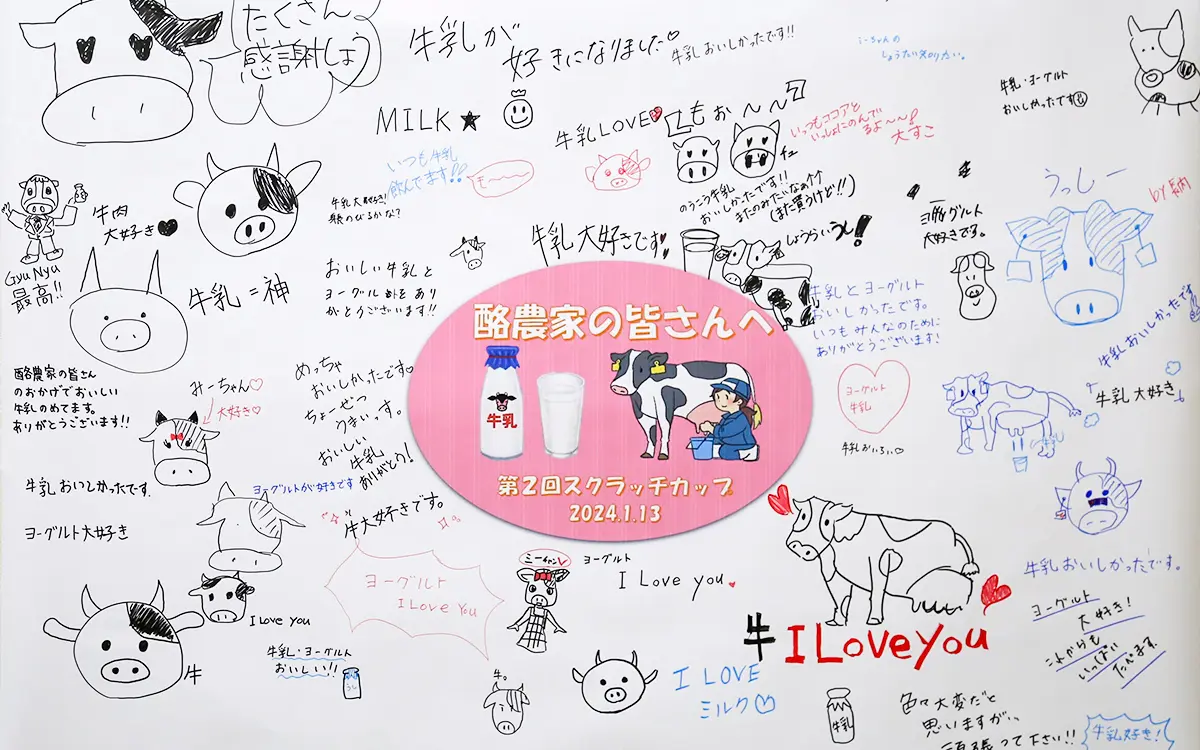 たくさん
感謝しよう
牛乳が
好きになりました♡
牛乳おいしかったです!!
牛乳・ヨーグルト
おいしかったです
MILK★
牛乳LOVE
もぉ〜〜
チュ
いつもココアと
いっしょにのんで
るよ〜〜!
大すこ
いつも牛乳
飲んでます!!
も〜〜
牛乳大好き!
のうこう牛乳
おいしかったです!!
(また買うけど!!)
牛肉
大好き♥
GyuNyu
最高!!
牛乳=神
おいしい牛乳と
ヨーグルトをあり
がとうございます!!
牛乳大好きです
ヨーグルト
大好きです。
うっしー
牛乳とヨーグルト
おいしかったです。
いつもみんなのために
ありがとうございます!
牛乳おいしかったです
酪農家の皆さんへ
牛乳
第2回スクラッチカップ
2024.1.13
酪農家の皆さん
のおかげでおいしい
牛乳のめてます。
ありがとうございます!!
みーちゃん♡
大好き♡
めっちゃ
おいしかったです♡
ちょーぜつ
うまいっす。
おいしい
牛乳
ありがとう!
ヨーグルト
牛乳
牛乳大好き
牛乳おいしかったです.
ヨーグルトが好きです
牛大好きです。
ヨーグルト大好き
ヨーグルト
I Love You
I Love you
ミーチャン
ヨーグルト
I Love you
牛 I Love you
牛乳おいしかったです。
ヨーグルト
大好き!
これからも
いっぱい
たべます。
牛
牛乳・ヨーグルト
おいしい!!
牛。
I LOVE
ミルク♡
牛乳
色々大変だと
思いますが、
頑張って下さい!!
牛乳好き!